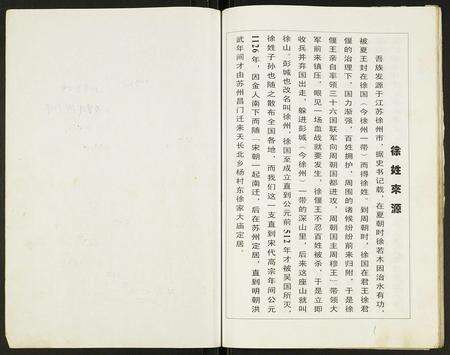 徐姓来源
吾族发源于江苏徐州市，据史书记载，在夏朝时徐若木因治水有功，
被夏王封在徐国（今徐州一带）而得徐姓。到周朝时，徐国在君王徐君
偃的治理下，国力渐强，百姓拥护，周围的诸侯纷纷前来归附。于是徐
偃王亲自率领三十六国联军向周朝国都进攻，周朝国主周穆王一带领大
军前来镇压，眼见一场血战就要发生，徐偃王不忍百姓被杀，于是立即
收兵并弃国出走，躲进彭城（今徐州）一带的深山里，后来这座山就叫
徐山，彭城也改名叫徐州。徐国至成立直到公元前512年才被吴国所灭，
徐姓子孙也随之散布全国各地。而我们这一支直到宋代高宗年间公元
1126年，因金人南下而随（宋朝一起南迁，后在苏州定居，直到明朝洪
武年间才由苏州昌门迁来天长北乡杨村东徐家大庙定居。